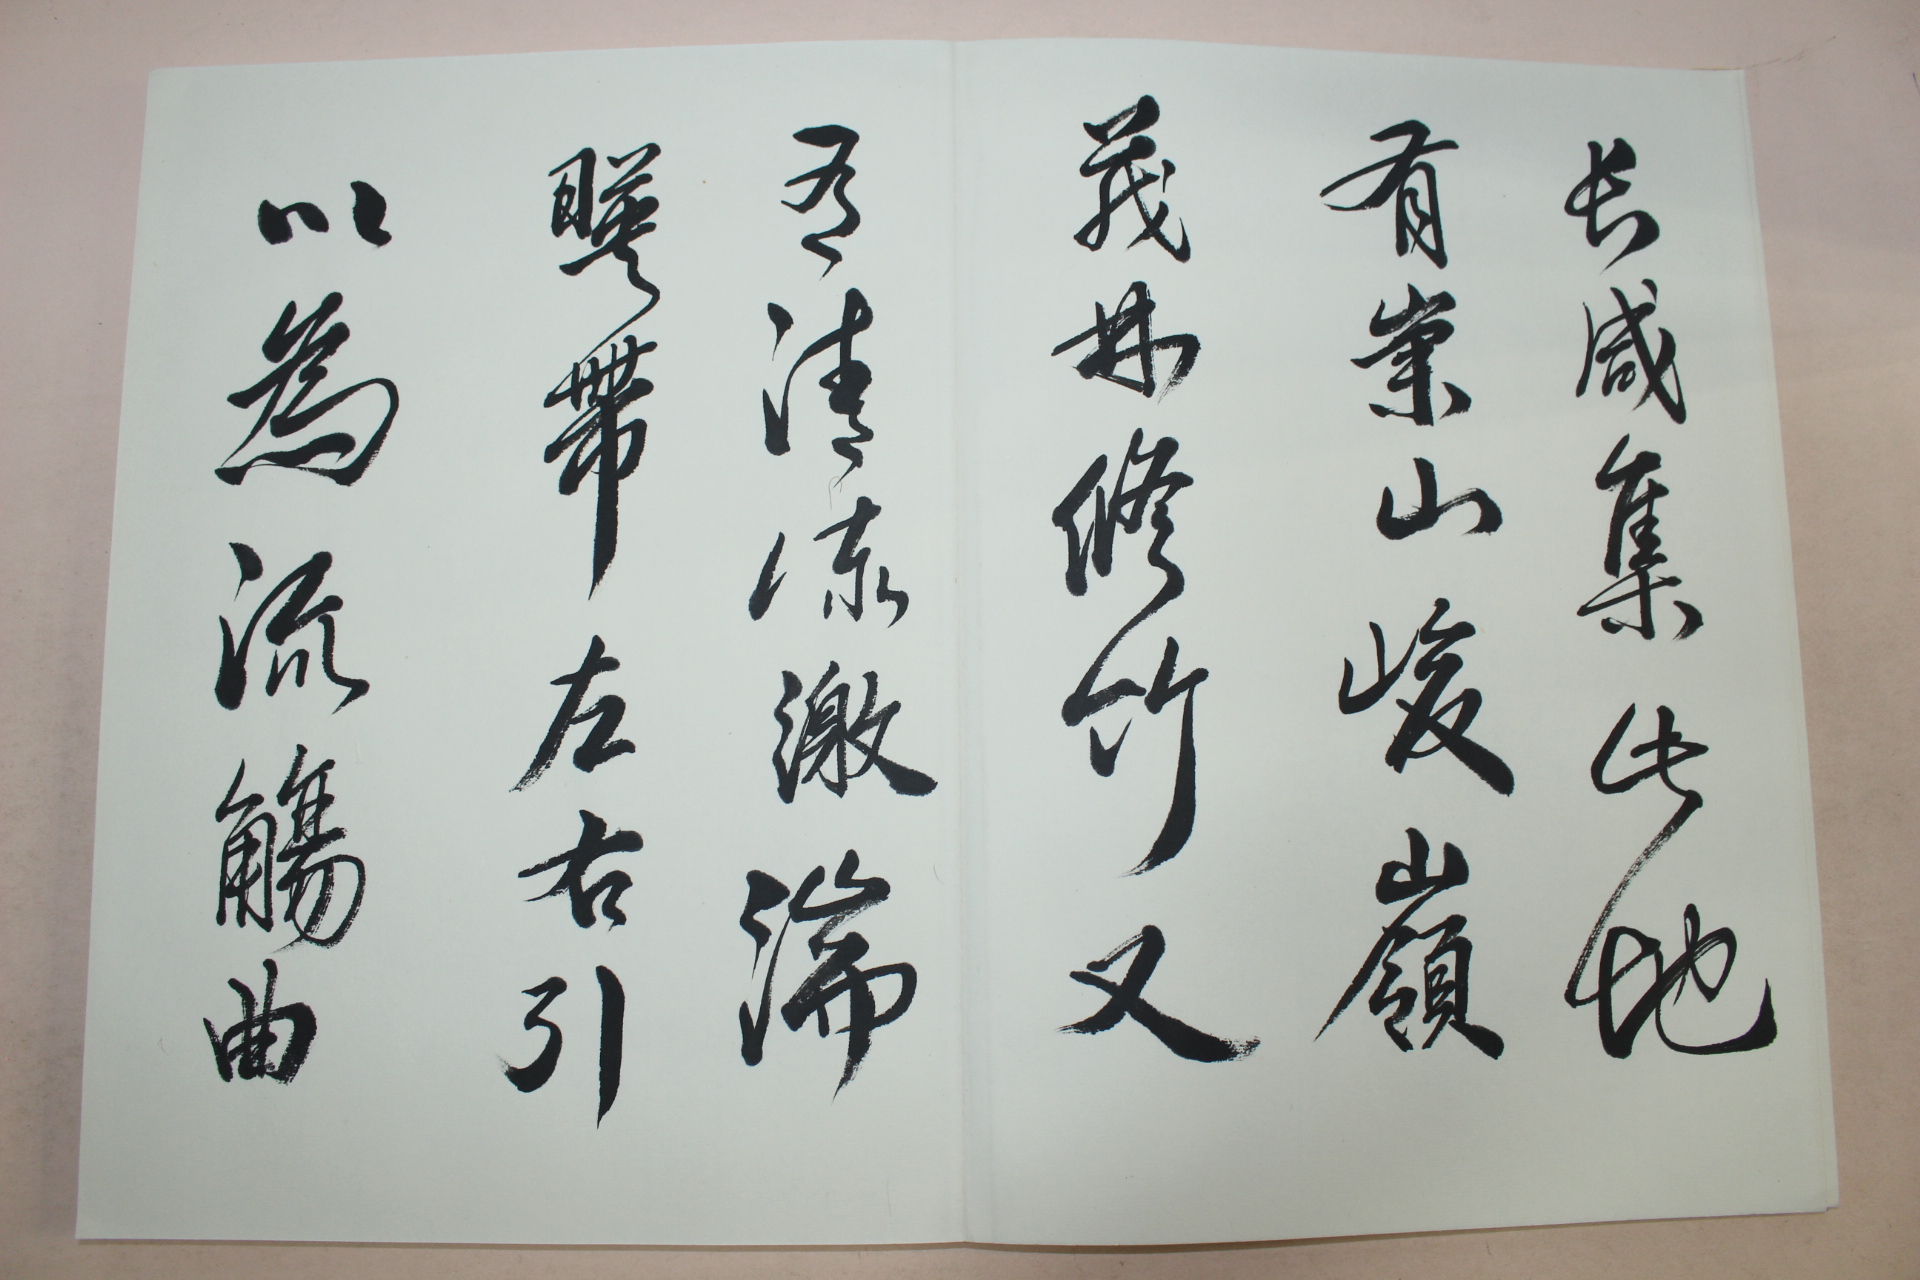 長咸集此地
有崇山峻嶺
茂林修竹又
有清流激湍
暎帶左右引
以為流觴曲